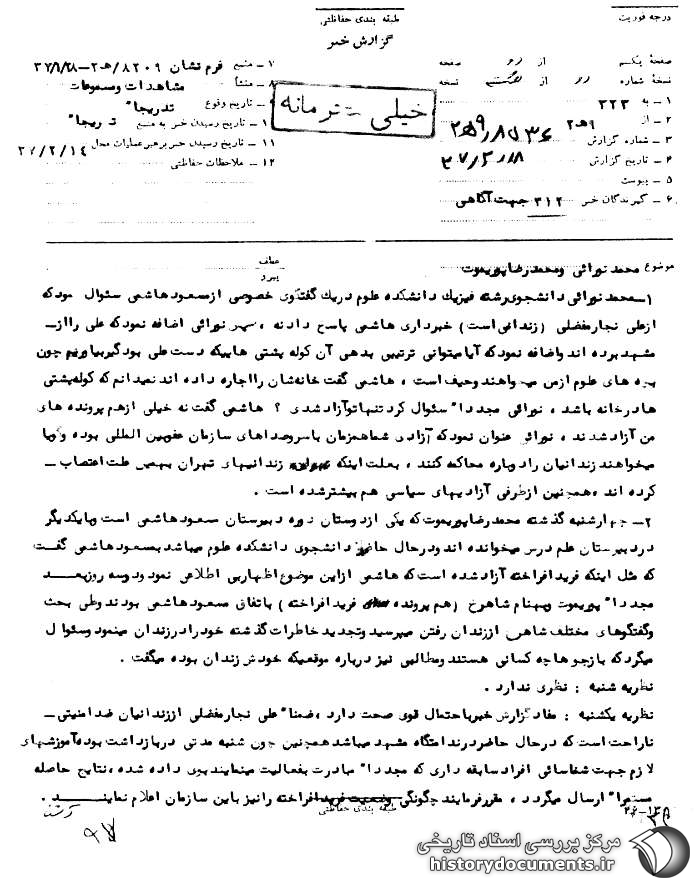 درجه فوریت
طبقه بندی حفاظتی
گزارش خبر
صفحهٔ یکم از صفحه
نسخهٔ شماره از نسخه
۱ - به ۳۲۳
۲ - از ۹ه۲
۳ - شماره گزارش
۴ - تاریخ گزارش
۵ - پیوست
۶ - گیرندگان خبر ۳۱۲ جهت آگاهی
۷ - منبع فرم نشان ۸۲۰۹/ه۲-
۸ - منشأ مشاهدات و مسموعات
۹ - تاریخ وقوع تدریجا"
۱۰ - تاریخ رسیدن خبر به منبع تدریجا"
۱۱ - تاریخ رسیدن خبر به رهبر عملیات محل ۳۷/۲/۱۴
۱۲ - ملاحظات حفاظتی
خیلی محرمانه
موضوع محمد نورائی و محمد رضا پوریموت
عطف
پیرو
۱-محمد نورائی دانشجوی رشته فیزیک دانشکده علوم در یک گفتگوی خصوصی از مسعود هاشمی سئوال نمود که
از علی نجار مفضلی (زندانی است) خبر داری هاشمی پاسخ داد نه ، سپس نورائی اضافه نمود که علی را از-
مشهد برده اند و اضافه نمود که آیا میتوانی ترتیبی بدهی آن کوله پشتی هاییکه دست علی بود گیر بیاوریم چون
بچه های علوم از من میخواهند و حیف است ، هاشمی گفت خانه شان را اجاره داده اند نمیدانم که کوله پشتی
ها در خانه باشد ، نورائی مجددا" سئوال کرد تنها تو آزاد شدی ؟ هاشمی گفت نه خیلی از هم پرونده های
من آزاد شدند ، نورائی عنوان نمود که آزادی شما همزمان با سر و صداهای سازمان عفو بین المللی بوده و گویا
میخواهند زندانیان را دوباره محاکمه کنند ، بعلت اینکه زندانیهای تهران بهمین علت اعتصاب-
کرده اند ،همچنین از طرفی آزادیهای سیاسی هم بیشتر شده است .
۲- چهارشنبه گذشته محمد رضا پوریموت که یکی از دوستان دوره دبیرستان مسعود هاشمی است و با یکدیگر
در دبیرستان علم درس میخوانده اند و در حال حاضر دانشجوی دانشکده علوم میباشد بمسعود هاشمی گفت
که مثل اینکه فرید افراخته آزاد شده است که هاشمی از این موضوع اظهار بی اطلاعی نمود و دو سه روز بعد
مجددا" پوریموت و بهنام شاهرخ (هم پرونده فرید افراخته) با تفاق مسعود هاشمی بودند و طی بحث
و گفتگوهای مختلف شاهرخ از زندان رفتن میپرسید و تجدید خاطرات گذشته خود را در زندان مینمود و سئوال
میکرد که بازجوها چه کسانی هستند و مطالبی نیز درباره موقعیکه خودش زندان بوده میگفت .
نظریه شنبه : نظری ندارد .
نظریه یکشنبه : مفاد گزارش خبر باحتمال قوی صحت دارد ،ضمنا" علی نجار مفضلی از زندانیان ضد امنیتی-
ناراحت است که در حال حاضر در ندامتگاه مشهد میباشد همچنین چون شنبه مدتی در بازداشت بوده آموزشهای
لازم جهت شناسائی افراد سابقه داری که مجددا" مبادرت بفعالیت مینمایند بوی داده شده ،نتایج حاصله
مستمرا" ارسال میگردد ، مقرر فرمایند چگونگی وضعیت فرید افراخته را نیز باین سازمان اعلام نمایند .
طبقه بندی حفاظتی
مرکز بررسی اسناد تاریخی
historydocuments.ir